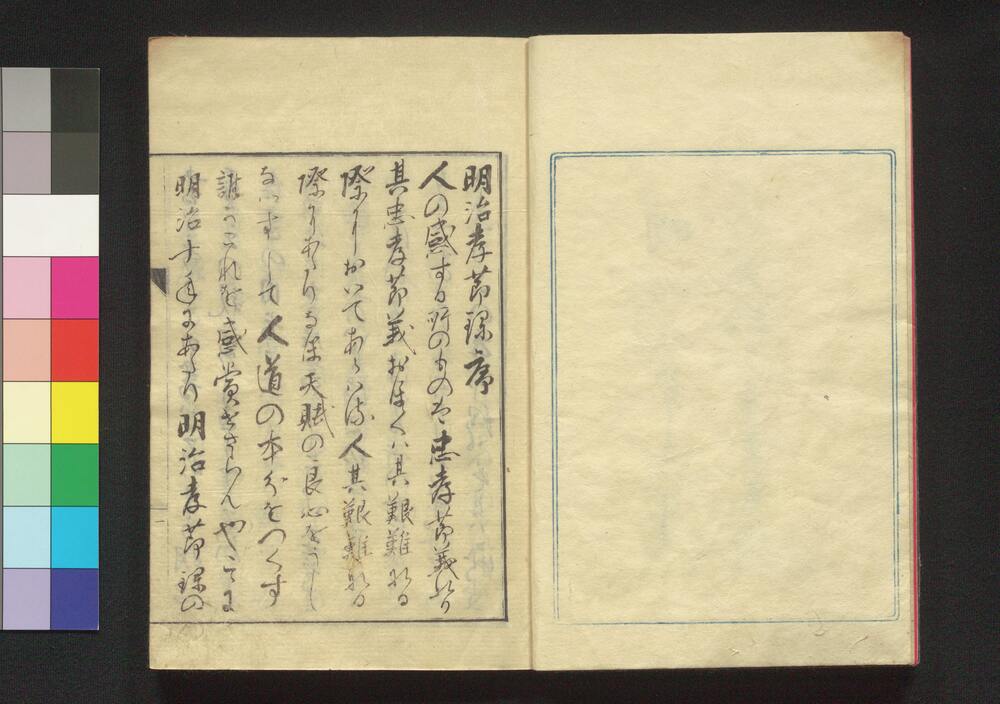 明治孝節録序
人の感する所のものは忠孝節義なり
其忠孝節義おほくハ其艱難なる
際においてあらハる人其艱難なる
際にあたりるは天賦の良心をうし
なハすして人道の本分をつくす
誰かこれを感賞せさらんやこゝに
明治十年にあたり明治孝節録の